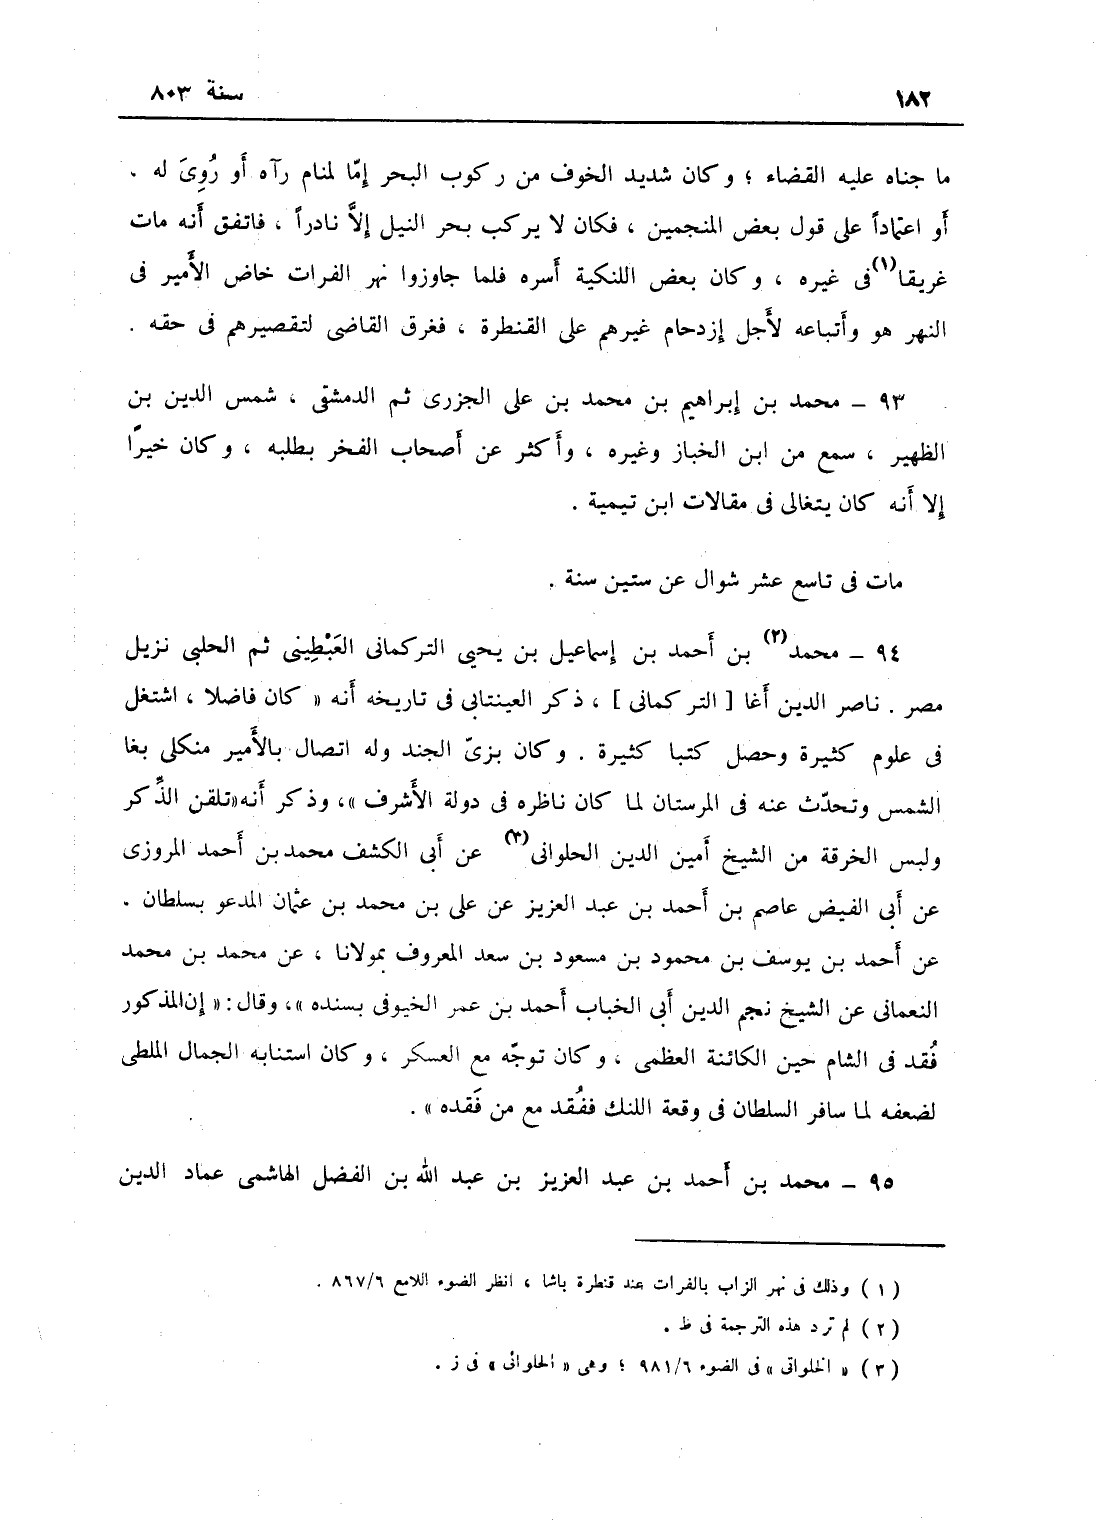 ١٨٢
سنة ٨٠٣
ما جناه عليه القضاء ؛ وكان شديد الخوف من ركوب البحر إمّا لمنام رآه أو رُوِىَ له .
أو اعتماداً على قول بعض المنجمين ، فكان لا يركب بحر النيل إلاَّ نادراً ، فاتفق أنه مات
غريقا(١) فى غيره ، وكان بعض اللنكية أسره فلما جاوزوا نهر الفرات خاض الأمير فى
النهر هو وأتباعه لأجل إزدحام غيرهم على القنطرة ، فغرق القاضى لتقصيرهم فى حقه .
٩٣ ــ محمد بن إبراهيم بن محمد بن على الجزرى ثم الدمشقى ، شمس الدين بن
الظهير ، سمع من ابن الخباز وغيره ، وأكثر عن أصحاب الفخر بطلبه ، وكان خيرًا
إلا أنه كان يتغالى فى مقالات ابن تيمية .
مات فى تاسع عشر شوال عن ستين سنة .
٩٤ ــ محمد(٢) بن أحمد بن إسماعيل بن يحيى التركمانى العَبْطِينى ثم الحلبى نزيل
مصر . ناصر الدين أغا [ التركمانى ] ، ذكر العينتابى فى تاريخه أنه « كان فاضلا ، اشتغل
فى علوم كثيرة وحصل كتبا كثيرة . وكان بزىّ الجند وله اتصال بالأمير منكلى بغا
الشمس وتحدّث عنه فى المرستان لما كان ناظره فى دولة الأشرف »، وذكر أنه «تلقن الذِّكر
ولبس الخرقة من الشيخ أمين الدين الحلوانى(٣) عن أبى الكشف محمد بن أحمد المروزى
عن أبى الفيض عاصم بن أحمد بن عبد العزيز عن على بن محمد بن عثمان المدعو بسلطان .
عن أحمد بن يوسف بن محمود بن مسعود بن سعد المعروف بمولانا ، عن محمد بن محمد
النعمانى عن الشيخ نجم الدين أبى الخباب أحمد بن عمر الخيوفى بسنده »، وقال : « إن المذكور
فُقد فى الشام حين الكائنة العظمى ، وكان توجّه مع العسكر ، وكان استنابه الجمال الملطى
لضعفه لما سافر السلطان فى وقعة اللنك ففُقد مع من فَقده » .
٩٥ ــ محمد بن أحمد بن عبد العزيز بن عبد الله بن الفضل الهاشمى عماد الدين
( ١ ) وذلك فى نهر الزاب بالفرات عند قنطرة باشا ، انظر الضوء اللامع ٨٦٧/٦ .
( ٢ ) لم ترد هذه الترجمة فى ظ .
( ٣ ) « الخلواتى » فى الضوء ٩٨١/٦ ؛ وهى « الحلوائى » فى ز .